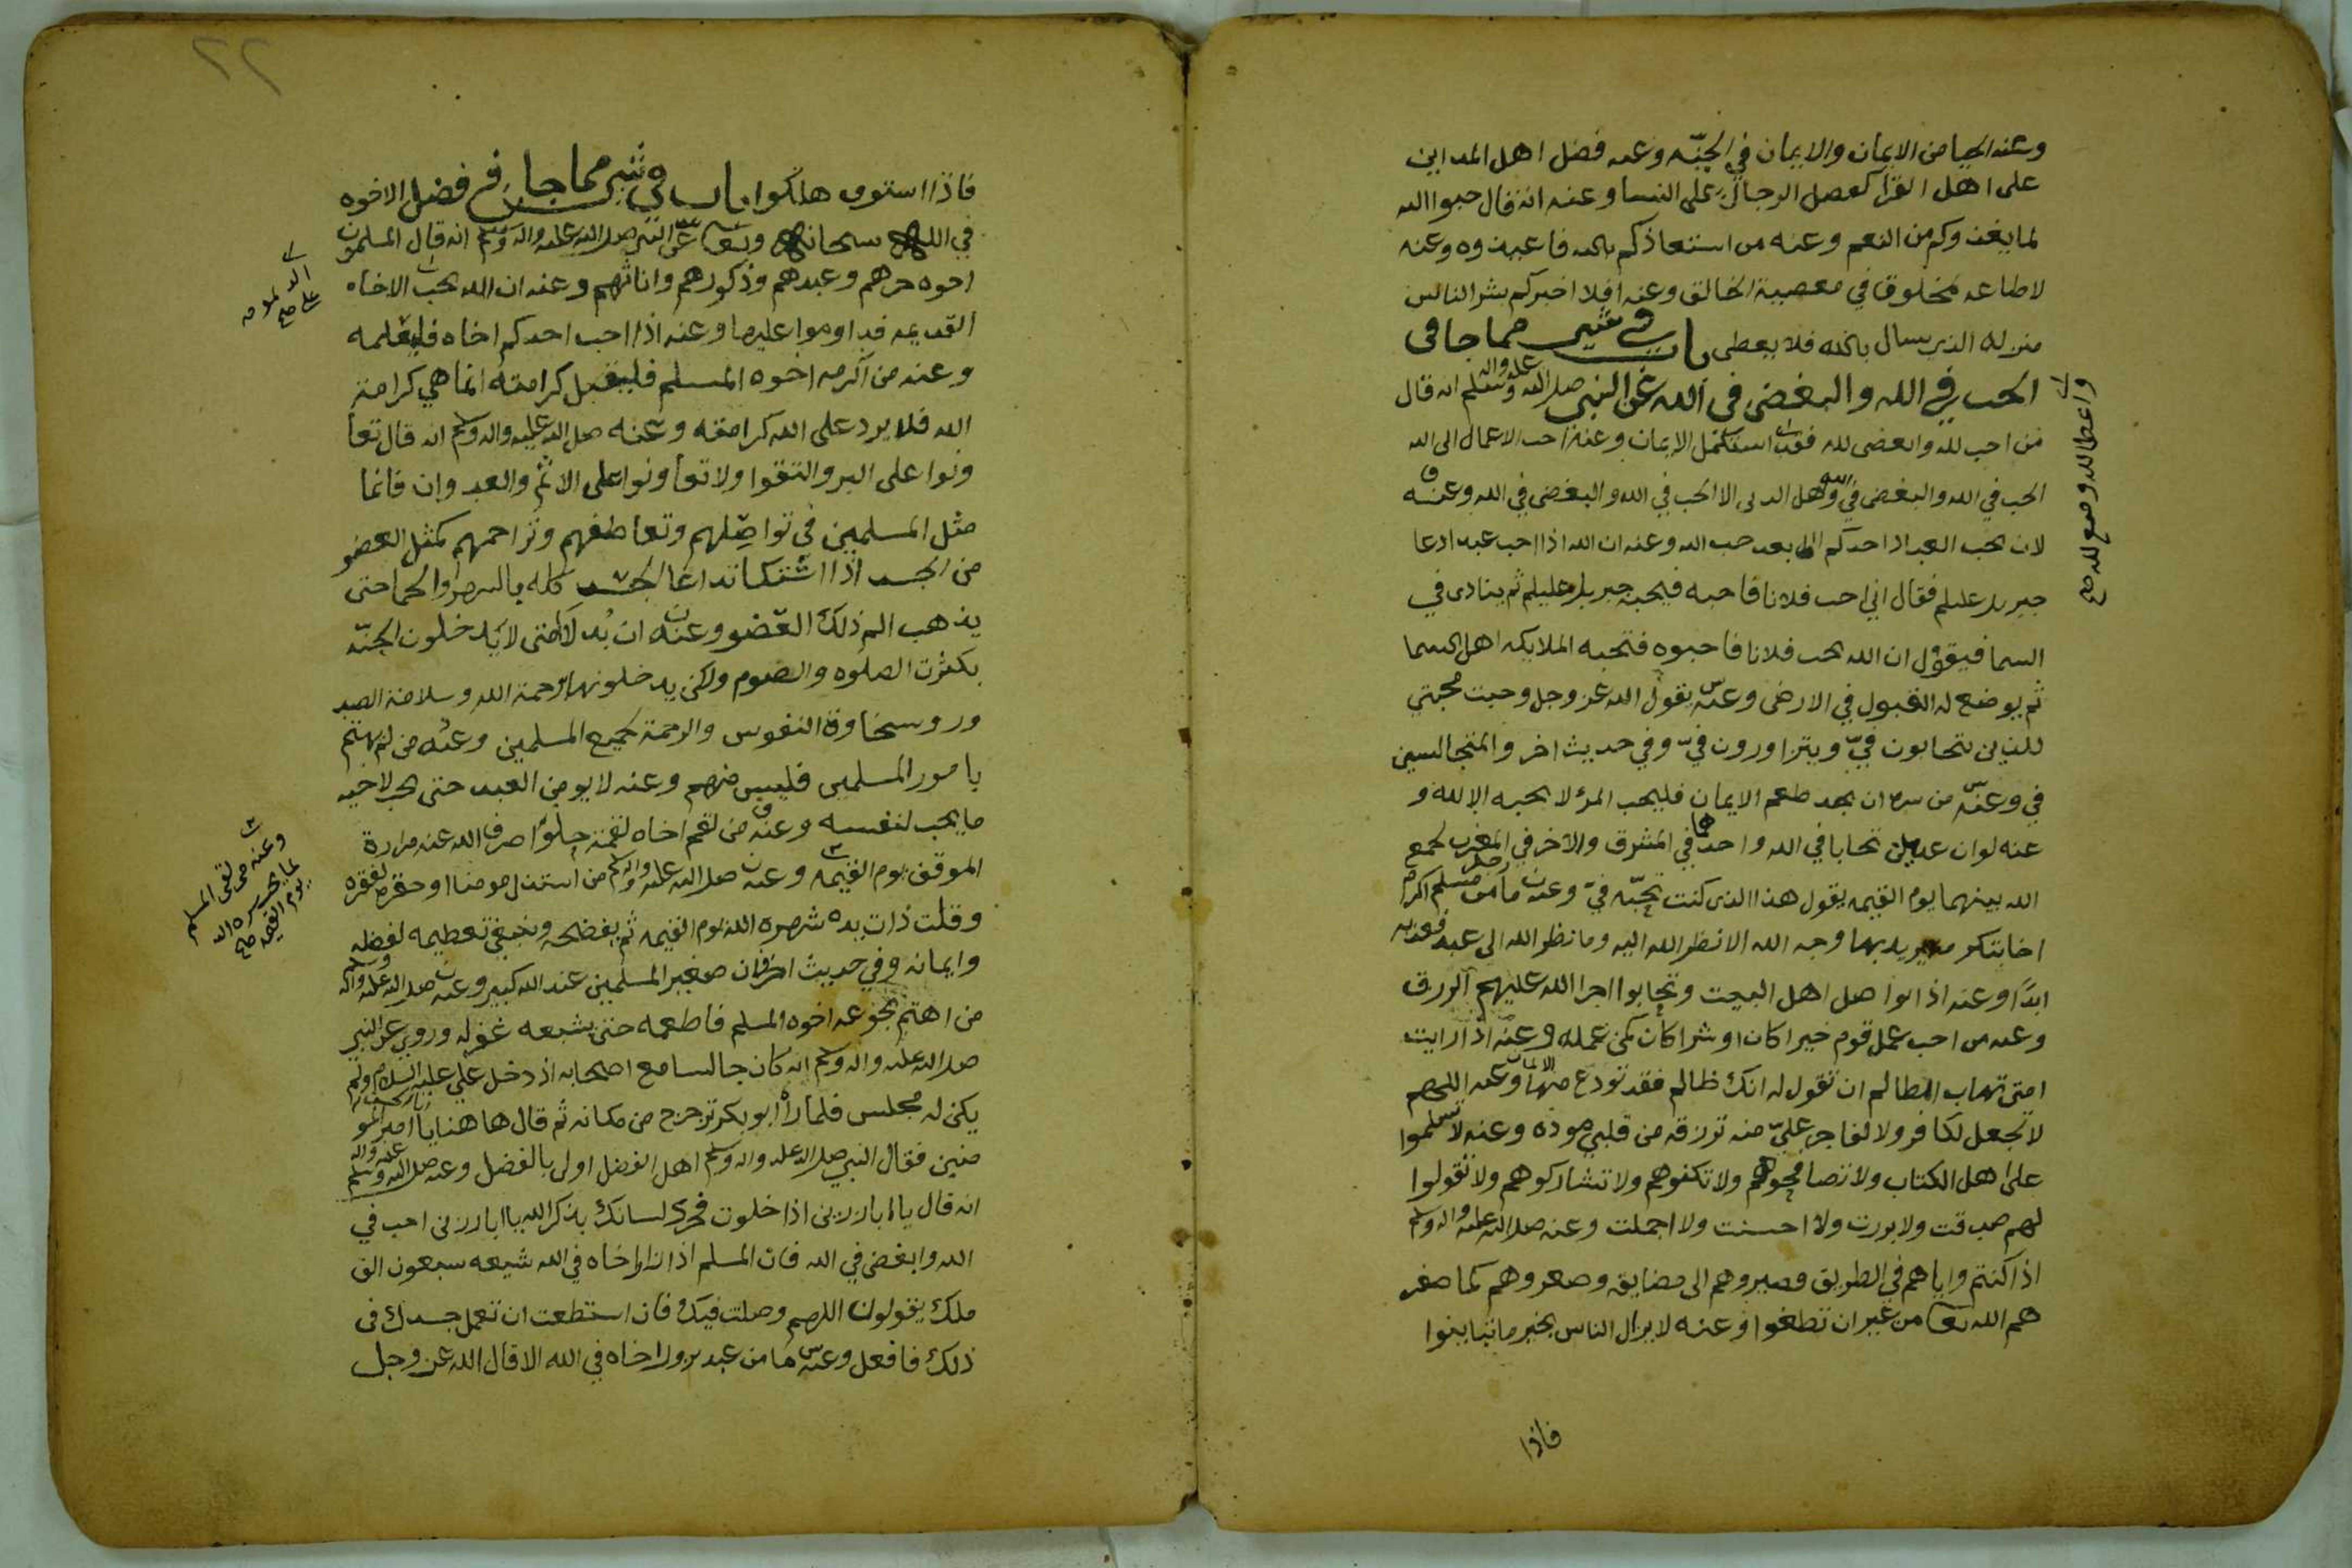 وعنه الحيا من الايمان والايمان في الجنّه وعنه فضل اهل المداين
على اهل القرا كفضل الرجال على النسا وعنه انه قال حبوا الله
لما يغذوكم من النعم وعنه من استعاذكم بالله فاعيذوه وعنه
لا طاعه لمخلوق في معصية الخالق وعنه افلا اخبركم بشر الناس
منزله الذي يسال بالله فلا يعطى باب في شي مما جا في
الحب في الله والبغض في الله عن النبي صلى الله عليه واله وسلم انه قال
من احب لله وابغض لله فقد استكمل الايمان وعنه احب الاعمال الى الله
الحب في الله والبغض في الله وهل الدين الا الحب في الله والبغض في الله وعنه
لان يحب العبد اذا احدكم بعد حب الله وعنه ان الله اذا احب عبدا دعا
جبريل عليلم فقال اني احب فلانا فاحبه فيحبه جبريل عليلم ثم ينادي في
السما فيقول ان الله يحب فلانا فاحبوه فتحبه الملايكه اهل السما
ثم يوضع له القبول في الارض وعنه يقول الله عز وجل وجبت محبتي
للذين يتحابون فيّ ويتزاورون فيّ وفي حديث اخر والمتجالسين
في وعنه من سره ان يجد طعم الايمان فليحب المرؤ لا يحبه الا لله و
عنه لو ان عبدين تحابا في الله واحدهما في المشرق والاخر في المغرب لجمع
الله بينهما يوم القيمه يقول هذا الذي كنت تحبّه فيّ وعنه ما من رجل مسلم اكرم
اخا يريد بها وجه الله الا نظر الله اليه وما نظر الله الى عبد فعذبه
ابدًا وعنه اذا تواصل اهل البيت وتحابوا اجرا الله عليهم الرزق
وعنه من احب عمل قوم خيرا كان او شرا كان كمن عمله وعنه اذا رايت
امتي تهاب الظالم ان تقول له انك ظالم فقد تودع منها وعنه اللهم
لا تجعل لكافر ولا لفاجر عليّ منه ترزقه من قلبي موده وعنه لا تسلموا
على اهل الكتاب ولا تصافحوهم ولا تكنوهم ولا تشاركوهم ولا تقولوا
لهم صدقت ولا بررت ولا احسنت ولا اجملت وعنه صلى الله عليه واله وسلم
اذا كنتم واياهم في الطريق فصيروهم الى مضايقه وصغروهم كما صغر
هم الله تعا من غير ان تطغوا وعنه لا يزال الناس بخير ما تباينوا
فاذا
واعطا لله ومنع لله صح
٢٢
فاذا استووا هلكوا باب في شي مما جا في فضل الاخوه
في اللهم سبحانه وتعا عن النبي صلى الله عليه واله وسلم انه قال المسلمون
اخوه حرهم وعبدهم وذكورهم واناثهم وعنه ان الله يحب الاخاه
القديمه فداوموا عليها وعنه اذا احب احدكم اخاه فليعلمه
وعنه من اكرمه اخوه المسلم فليقبل كرامته انما هي كرامة
الله فلا يرد على الله كرامته وعنه صلى الله عليه واله وسلم انه قال تعا
ونوا على البر والتقوا ولا تعاونوا على الاثم والعدوان فانما
مثل المسلمين في تواصلهم وتعاطفهم وتراحمهم كمثل العضو
من الجسد اذا اشتكا تداعا الجسد كله بالسهر والحما حتى
يذهب الم ذلك العضو وعنه ان بُدلا امتي لا يدخلون الجنّه
بكثرت الصلوه والصوم ولكن يدخلونها برحمة الله وسلامة الصد
ور وسخاوة النفوس والرحمة لجميع المسلمين وعنه من لم يهتم
بامور المسلمين فليس منهم وعنه لا يومن العبد حتى يحب لاخيه
ما يحب لنفسه وعنه من لقم اخاه لقمة حلوًا صرف الله عنه مرارة
الموقف يوم القيمه وعنه صلى الله عليه واله وسلم من استذل مومنا او حقره لفقره
وقلت ذات يده شهره الله يوم القيمه ثم يفضحه وينبغي تعظيمه لفضله
وايمانه وفي حديث اخر فان صغير المسلمين عند الله كبير وعنه صلى الله عليه واله وسلم
من اهتم بجوعه اخوه المسلم فاطعمه حتى يشبعه غفر له وروي عن النبي
صلى الله عليه واله وسلم انه كان جالسا مع اصحابه اذ دخل علي عليه السلام ولم
يكن له مجلس فلما راه ابو بكر تزحزح من مكانه ثم قال هاهنا يا امير المو
منين فقال النبي صلى الله عليه واله وسلم اهل الفضل اولى بالفضل وعنه صلى الله عليه واله وسلم
انه قال يا ابا رزين اذا خلوت فحرك لسانك بذكر الله يا ابا رزين احب في
الله وابغض في الله فان المسلم اذا زار اخاه في الله شيعه سبعون الف
ملك يقولون اللهم وصلت فيك فان استطعت ان تعمل جسدك في
ذلك فافعل وعنه ما من عبد يزور اخاه في الله الا قال الله عز وجل
وعنه من لقى المسلم
لما يحب سره الله
يوم القيمه صح